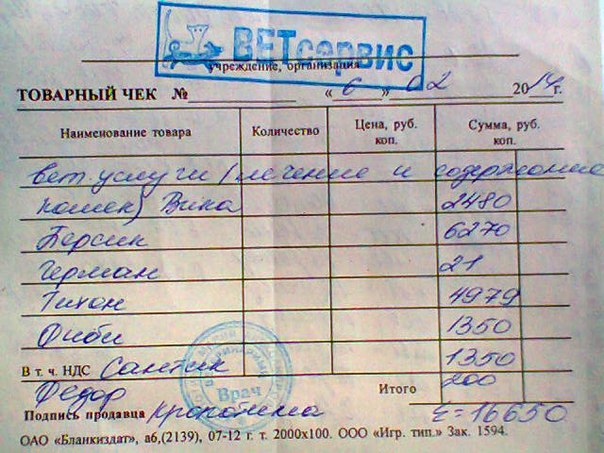 ВЕТсервис
учреждение, организация
ТОВАРНЫЙ ЧЕК № « 6 » 02 2014 г.
Наименование товара Количество Цена, руб. коп. Сумма, руб. коп.
вет. услуги (лечение и содержание
кошек) Вика 2480
Персик 6270
Герман 21
Тихон 4979
Фиби 1350
В т. ч. НДС Сантик 1350
Федор Итого 200
Врач
Подпись продавца Σ=16650
ОАО «Бланкиздат», а6,(2139), 07-12 г. т. 2000х100. ООО «Игр. тип.» Зак. 1594.